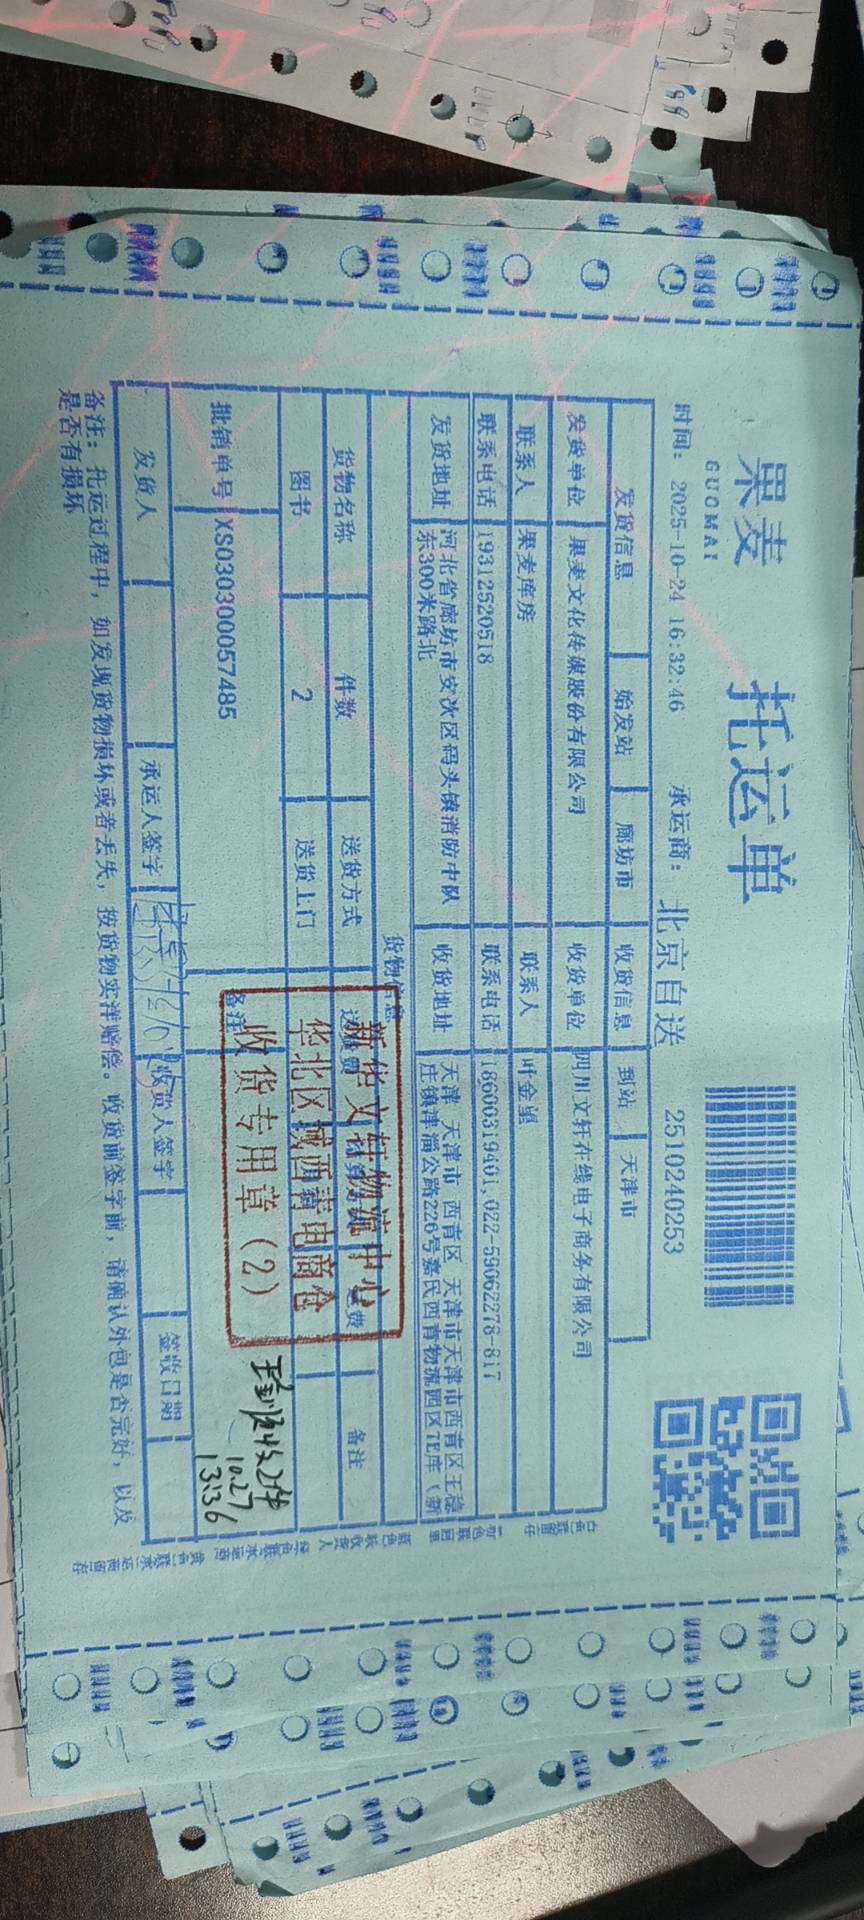 果麦
GUOMAI
托运单
2510240253
时间: 2025-10-24 16:32:46 承运商: 北京自送
发货信息 始发站 廊坊市 收货信息 到站 天津市
发货单位 果麦文化传媒股份有限公司 收货单位 四川文轩在线电子商务有限公司
联系人 果麦库房 联系人 叶金望
联系电话 19312520518 联系电话 18600319401,022-59062278-817
发货地址 河北省廊坊市安次区码头镇消防中队
东300米路北
收货地址 天津 天津市 西青区 天津市天津市西青区王稳
庄镇津涌公路226号嘉民西青物流园区7E库（新
货物信息
货物名称 件数 送货方式 备注
图书 2 送货上门
批销单号 XS030300057485 备注
新华文轩物流中心
华北区域西青电商仓
收货专用章（2）
实收2件
10.27
13:36
发货人 承运人签字 收货人签字 签收日期
备注: 托运过程中, 如发现货物损坏或者丢失, 按货物实洋赔偿。收货前签字前, 请确认外包是否完好, 以及
是否有损坏
白色联留存 蓝色联收货人 绿色联承运商 黄色联承运商留存